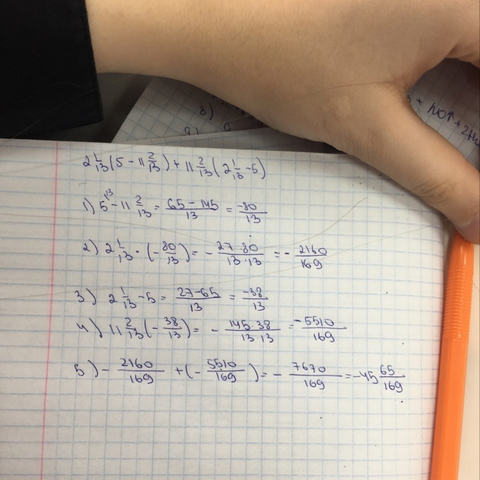 8)
+ NO↑ + 2H₂
2 1/13 (5 - 11 2/13) + 11 2/13 (2 1/13 - 5)
1) 5^13 - 11 2/13 = 65 - 145/13 = -80/13
2) 2 1/13 · (-80/13) = - 27·80/13·13 = - 2160/169
3) 2 1/13 - 5 = 27-65/13 = -38/13
4) 11 2/13 (- 38/13) = - 145·38/13·13 = -5510/169
5) - 2160/169 + (- 5510/169) = - 7670/169 = -45 65/169